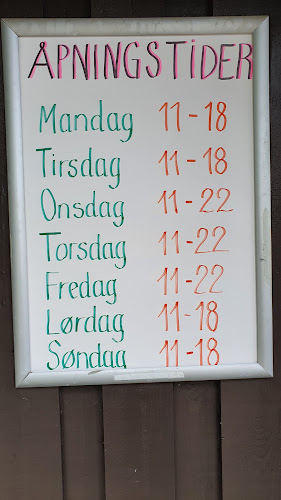 ÅPNINGSTIDER
Mandag 11-18
Tirsdag 11-18
Onsdag 11-22
Torsdag 11-22
Fredag 11-22
Lørdag 11-18
Søndag 11-18